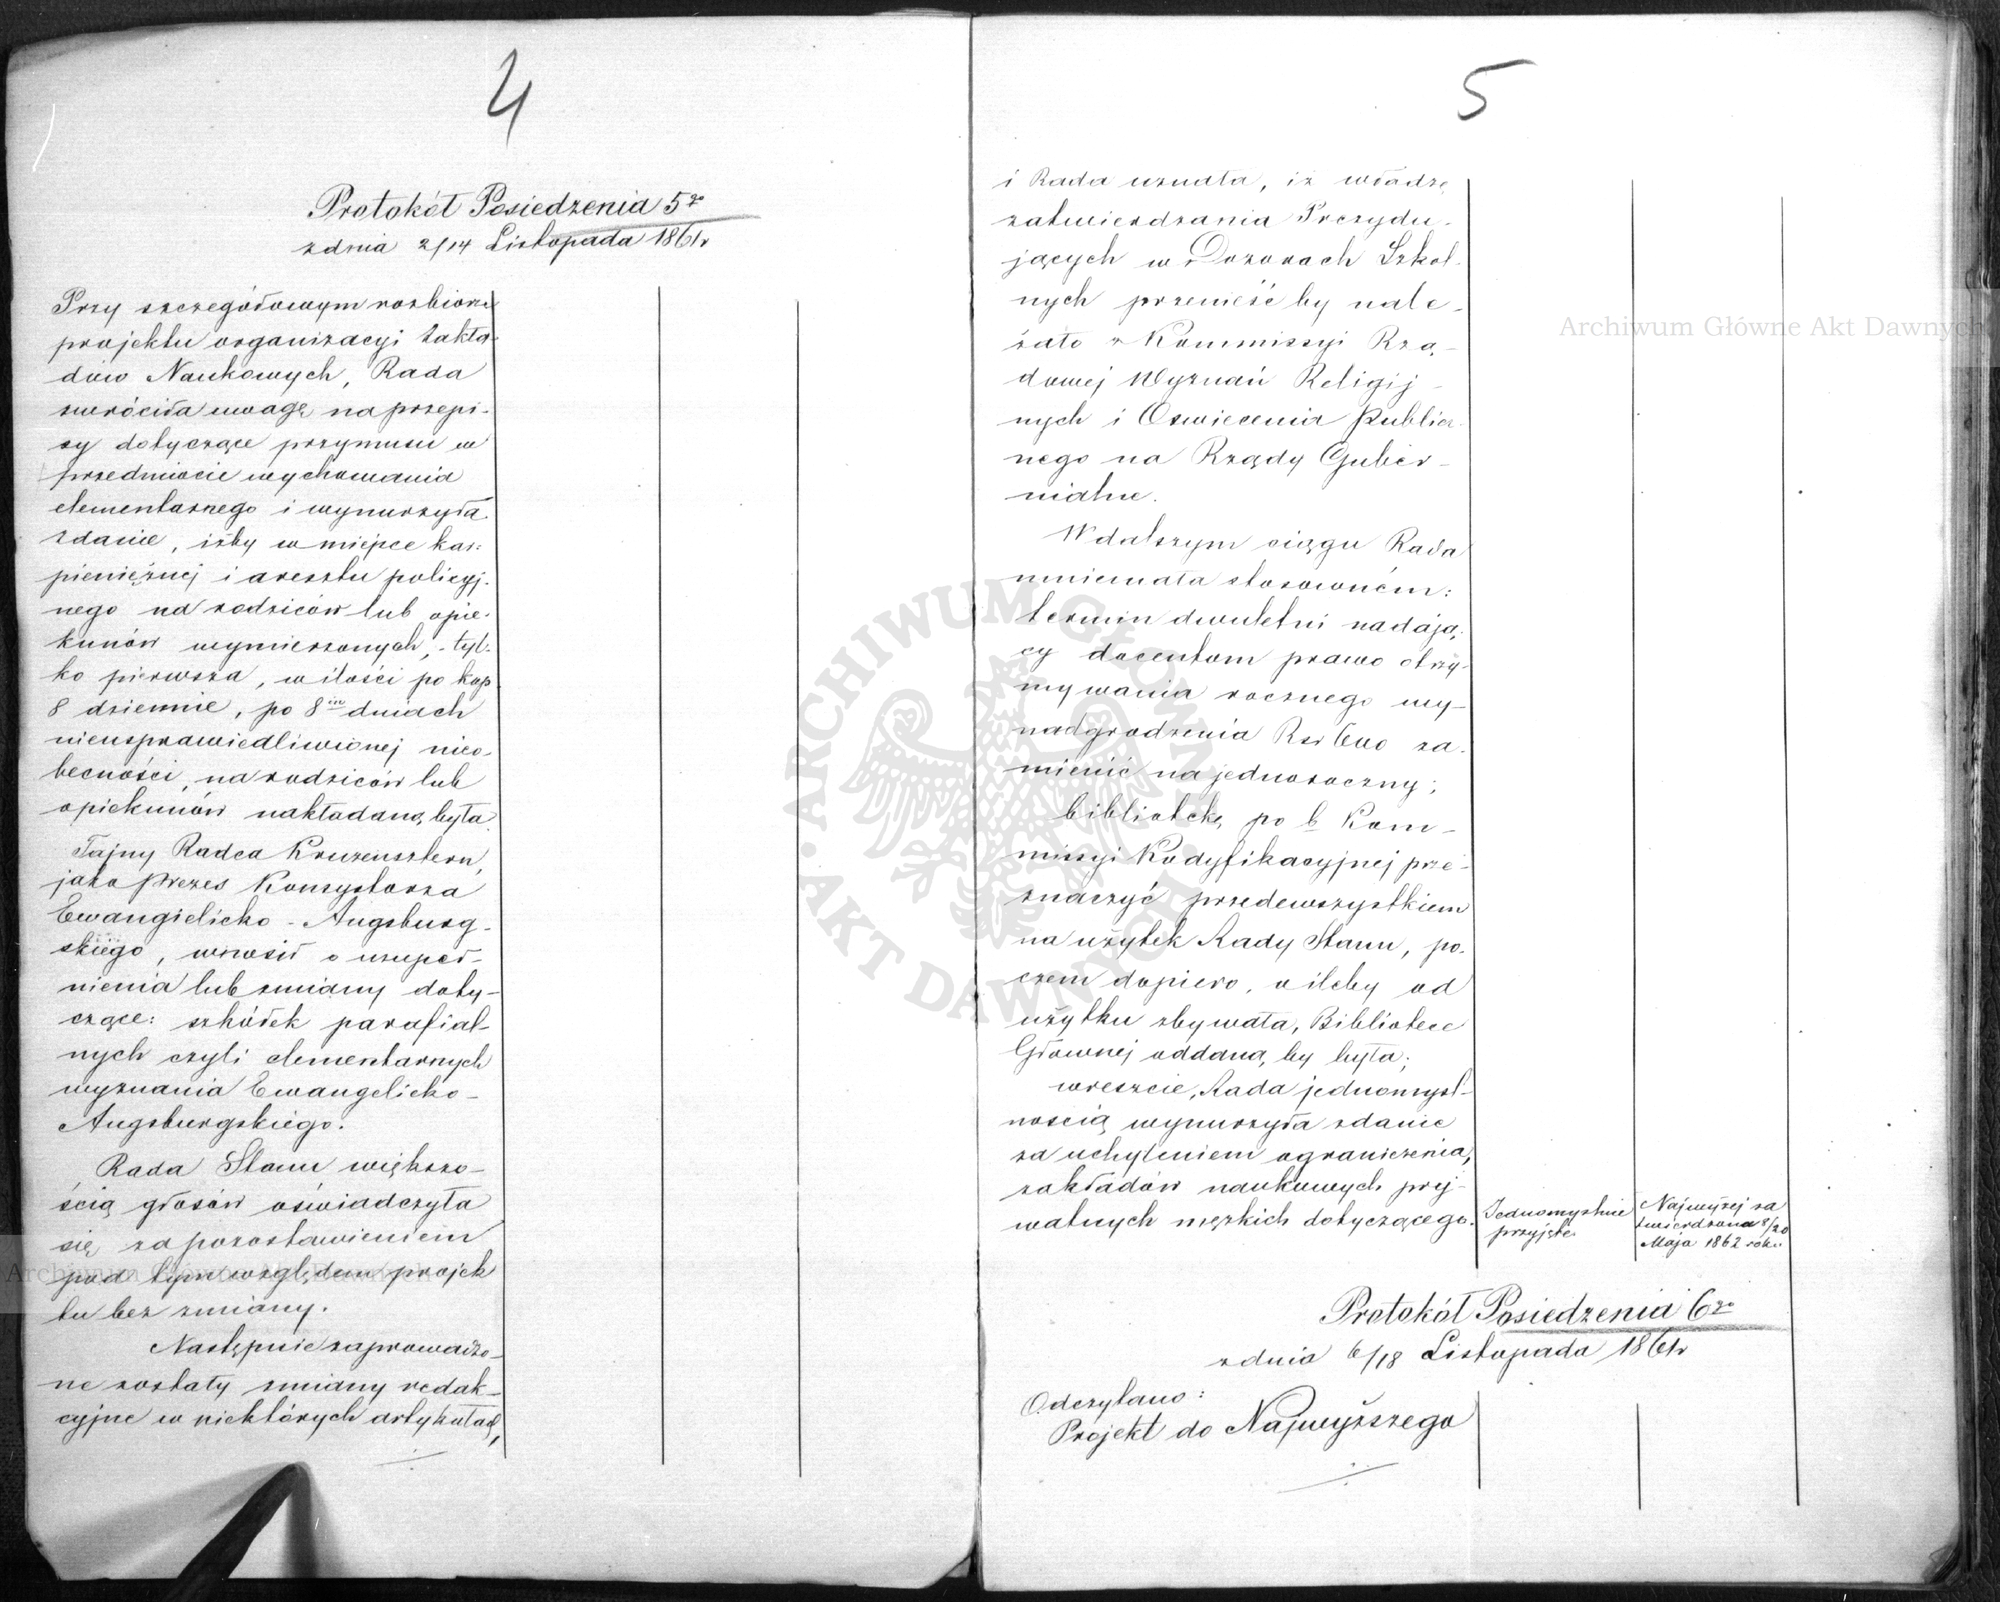 4
Protokół Posiedzenia 5go
z dnia 2/14 Listopada 1861r
Przy szczegółowym rozbiorze
projektu organizacyi Zakła-
dów Naukowych, Rada
zwróciła uwagę na przepi-
sy dotyczące przymusu w
przedmiocie wychowania
elementarnego i wynurzyła
zdanie, iżby w miejsce kar:
pieniężnej i aresztu policyj-
nego na rodziców lub opie-
kunów wymierzonych, tyl-
ko pierwsza, w ilości po kop
8 dziennie, po 8iu dniach
nieusprawiedliwionej nieo-
becności, na rodziców lub
opiekunów nakładaną była.
Tajny Radca Kruzensztern,
jako Prezes Konsystorza
Ewangielicko-Augsburg-
skiego, wnosił o uzupeł-
nienia lub zmiany doty-
czące: szkółek parafial-
nych czyli elementarnych
wyznania Ewangelicko-
Augsburgskiego.
Rada Stanu większo-
ścią głosów oświadczyła
się za pozostawieniem
pod tym względem projek
tu bez zmiany.
Następnie zaprowadzo-
ne zostały zmiany redak-
cyjne w niektórych artykułach,
5
i Rada uznała, iż władzę
zatwierdzania Prezydu-
jących w Dozorach Szkol-
nych przenieść by nale-
żało z Kommissyi Rzą-
dowej Wyznań Religij-
nych i Oświecenia Publicz-
nego na Rządy Guber-
nialne.
W dalszym ciągu Rada
mniemała stosownem:
termin dwuletni nadają-
cy docentom prawo otrzy-
mywania rocznego wy-
nadgrodzenia Rsr 600 za-
mienić na jednoroczny;
bibliotekę po b. Kom-
missyi Kodyfikacyjnej prze-
znaczyć przedewszystkiem
na użytek Rady Stanu, po-
czem dopiero, o ileby od
użytku zbywała, Bibliotece
Głównej oddaną by była;
wreszcie, Rada jednomyśl-
nością wynurzyła zdanie
za uchyleniem ograniczenia,
zakładów naukowych pry-
watnych męzkich dotyczącego.
Jednomyślnie
przyjęte
Najwyżej za
twierdzona 8/20
Maja 1862 roku
Protokół Posiedzenia 6go
z dnia 6/18 Listopada 1861r
Odczytano:
Projekt do Najwyższego
Archiwum Główne Akt Dawnych
Archiwum Główne Akt Dawnych
ARCHIWUM GŁÓWNE AKT DAWNYCH